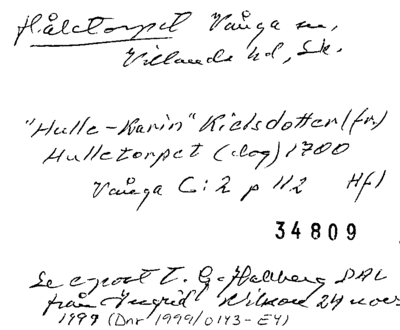 Håletorpet Vånga sn,
Villands hd, Sk.
"Hulle-Karin" Kielsdotter (fr.)
Hulletorpet (dog) 1700
Vånga C:2 p 112 Hfl
34809
Se e-post t. G. Hallberg DAL
från Ingrid Nilsson 24 nov
1999 (Dnr 1999/0143-E4)